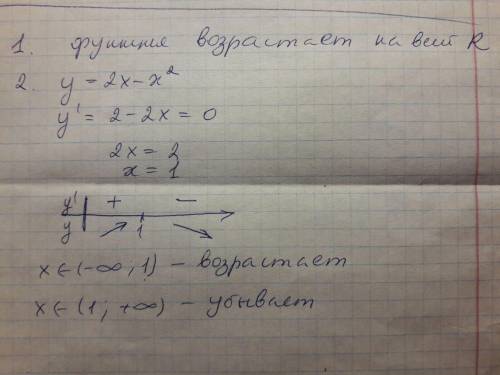 1. функция возрастает на всей R
2. y = 2x - x²
y' = 2 - 2x = 0
2x = 2
x = 1
y' + -
y 1
x ∈ (-∞; 1) - возрастает
x ∈ (1; +∞) - убывает